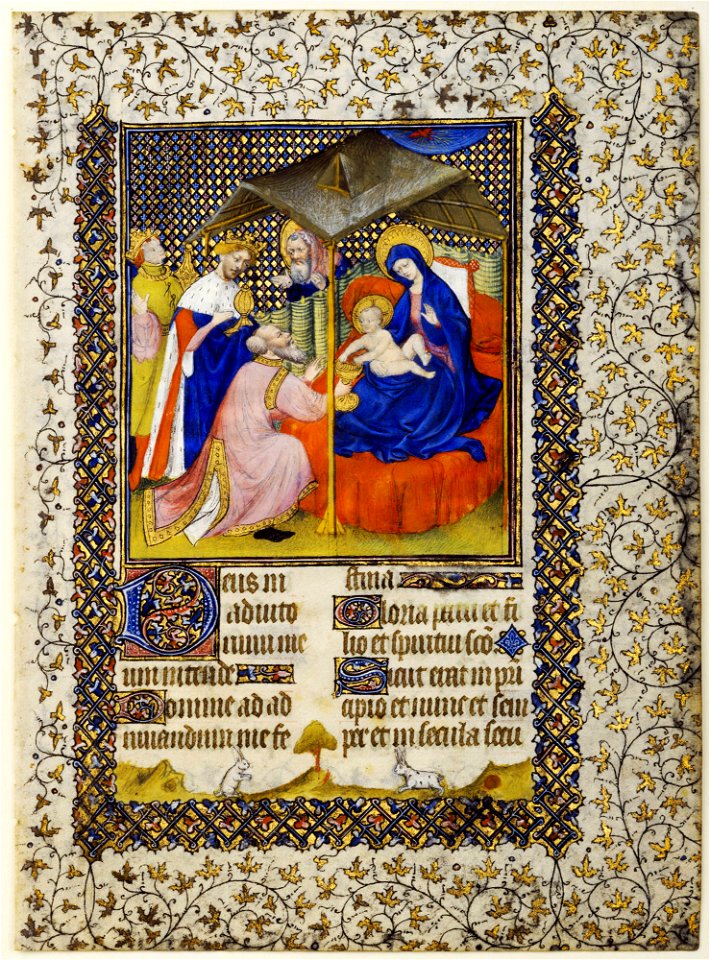 Deus in
adiuto
rium me
um intende
Domine ad ad
iuuandum me fe
stina
Gloria patri et fi
lio et spiritui sc̄o.
Sicut erat in pri
cipio et nunc et sem
per et in secula secu